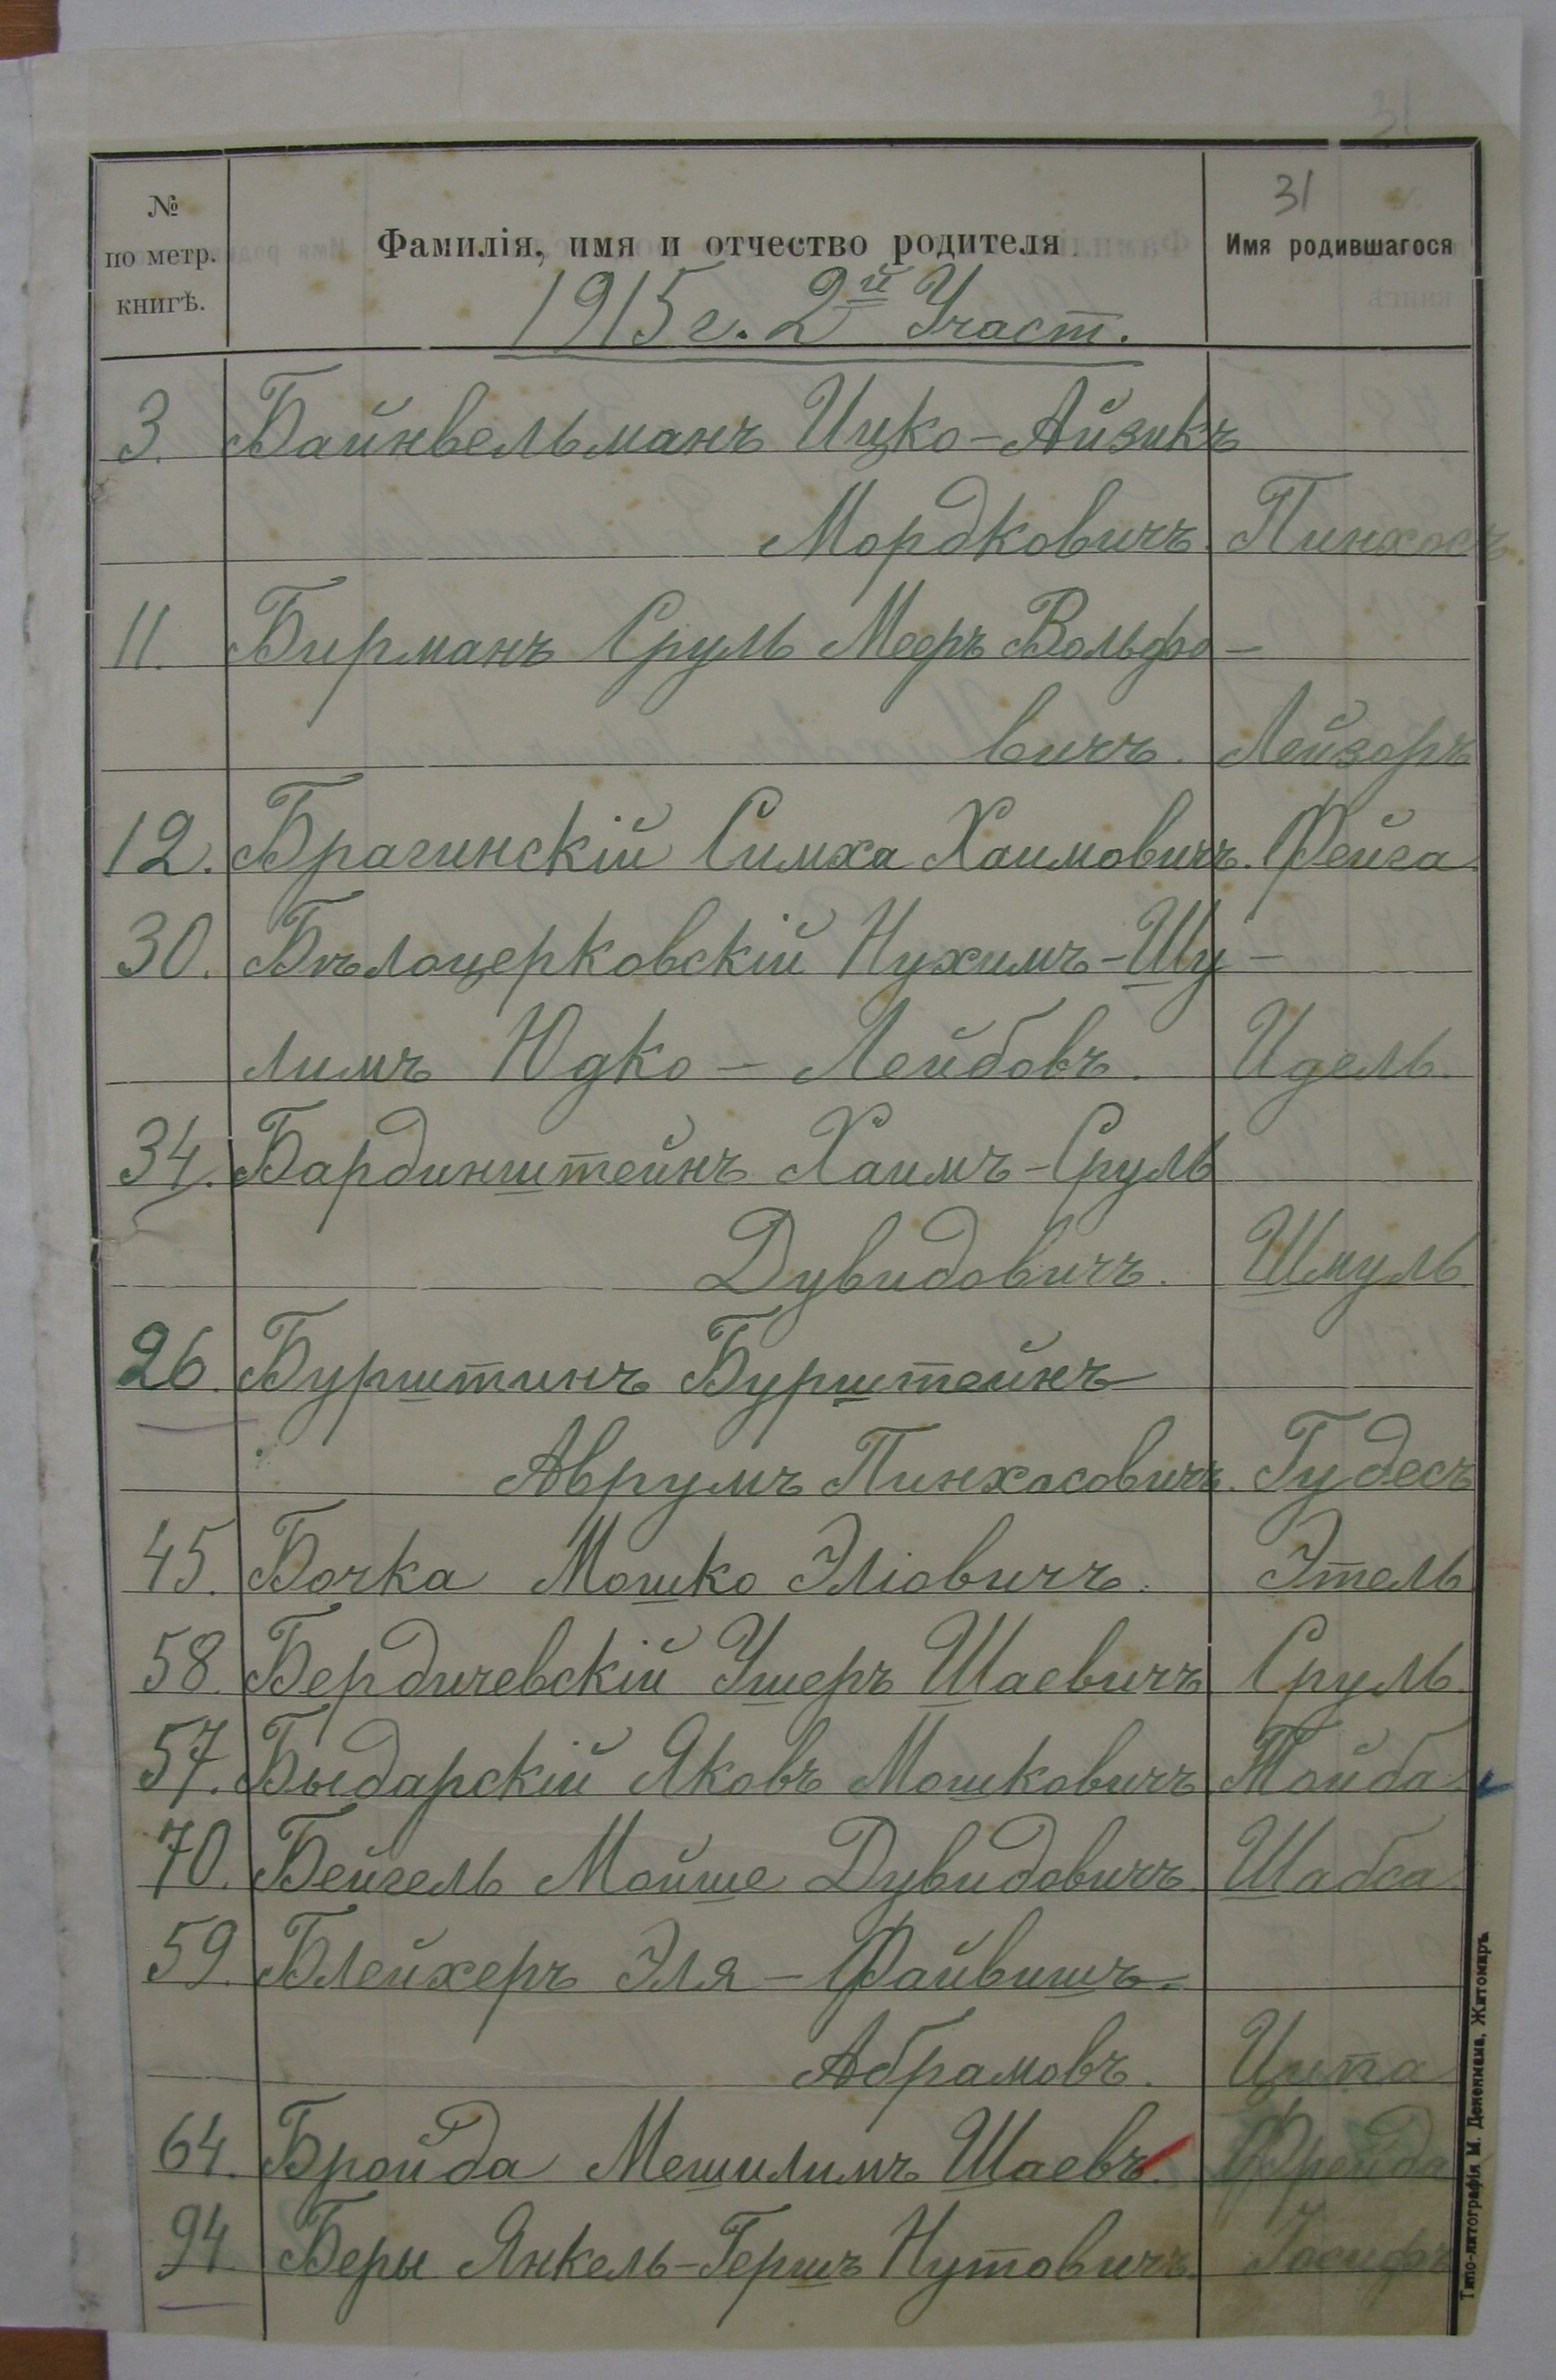 31
31
№ по метр. книгѣ.
Фамилія, имя и отчество родителя
Имя родившагося
1915 г. 2й Участ.
3. Байнвельманъ Ицко-Айзикъ
Мордковичъ. Пинхосъ.
11. Бирманъ Сруль Мееръ Вольфо-
вичъ. Лейзоръ
12. Брагинскій Симха Хаимовичъ. Фейга.
30. Бѣлоцерковскій Нухимъ-Шу-
лимъ Юдко-Лейбовъ. Идель.
34. Бардинштейнъ Хаимъ-Сруль
Дувидовичъ. Шмуль.
26. Бурштинъ Бурштейнъ
Аврумъ Пинхасовичъ. Гудесъ
45. Бочка Мошко Эліовичъ. Этель
58. Бердичевскій Ушеръ Шаевичъ Сруль.
57. Быдарскій Яковъ Мошковичъ Тойба.
70. Бейгель Мойше Дувидовичъ. Шабса.
59. Блейхеръ Эля-Файвишъ.
Абрамовъ. Ципа
64. Бройда Мешилимъ Шаевъ. Фрейда
94. Беры Янкель-Гершъ Нутовичъ. Іосифъ
Типо-литографія М. Дененмана, Житомиръ